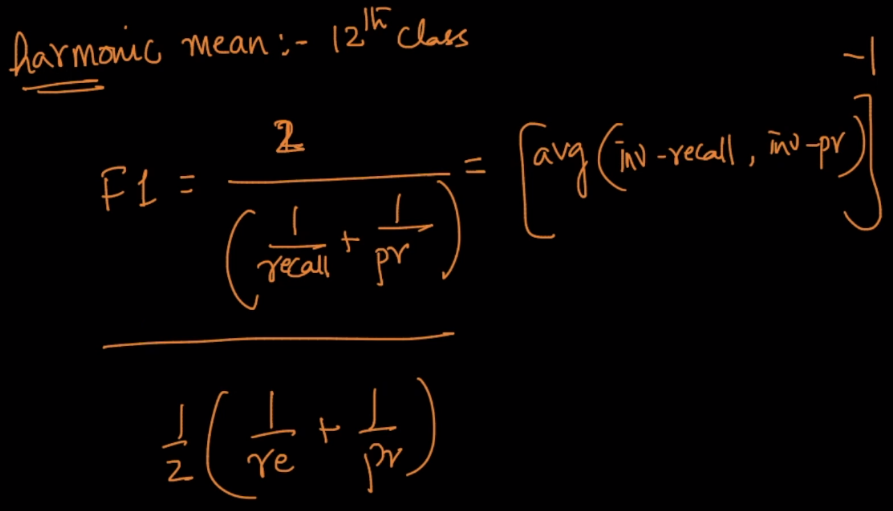 harmonic mean :- 12th class
F1 = 2 / (1/recall + 1/pr) = [avg (inv-recall, inv-pr)]^-1
1/2 (1/re + 1/pr)